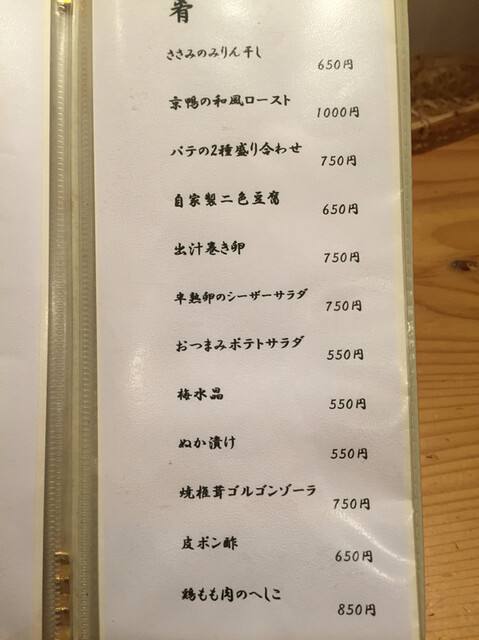 肴
ささみのみりん干し 650円
京鴨の和風ロースト 1000円
パテの2種盛り合わせ 750円
自家製二色豆腐 650円
出汁巻き卵 750円
半熟卵のシーザーサラダ 750円
おつまみポテトサラダ 550円
梅水晶 550円
ぬか漬け 550円
焼椎茸ゴルゴンゾーラ 750円
皮ポン酢 650円
鶏もも肉のへしこ 850円